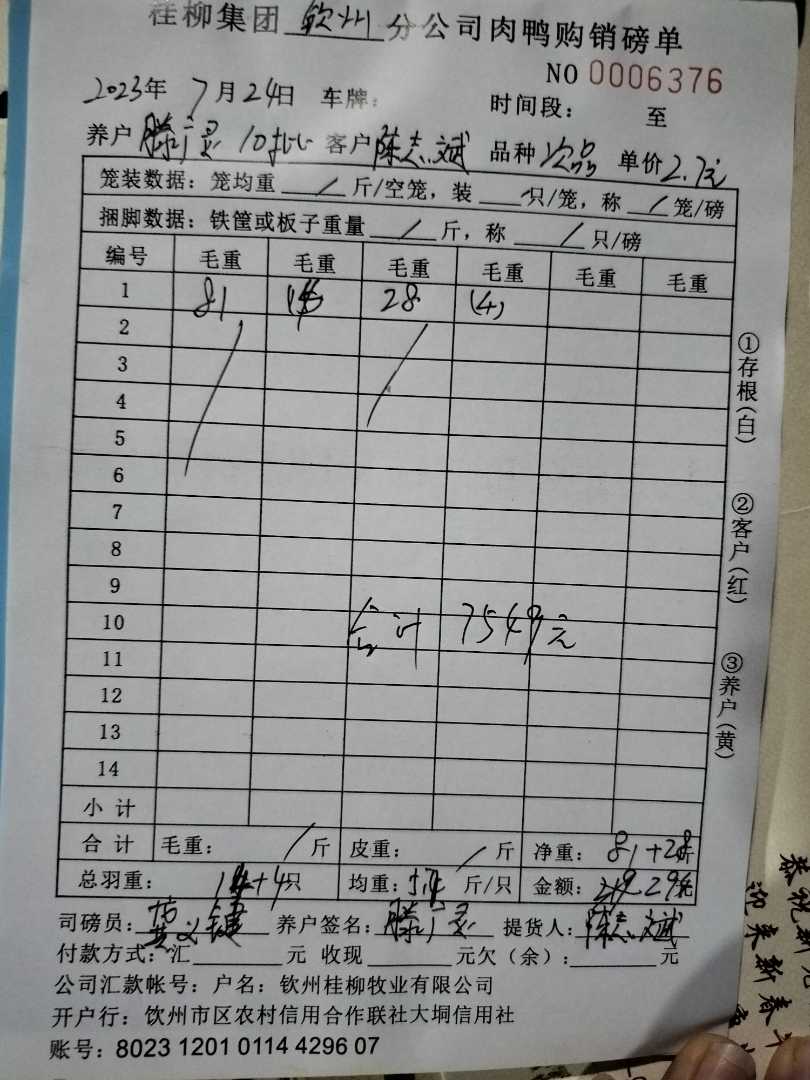 桂柳集团 钦州 分公司肉鸭购销磅单
NO 0006376
2023年 7月24日 车牌: 时间段: 至
养户 滕广灵 10批 客户 陈志斌 品种 次品 单价 2.7元
笼装数据: 笼均重 / 斤/空笼, 装 只/笼, 称 / 笼/磅
捆脚数据: 铁筐或板子重量 / 斤, 称 / 只/磅
编号 毛重 毛重 毛重 毛重 毛重 毛重
1 81 28 (4)
2
3
4
5
6
7
8
9
10 合计 7549元
11
12
13
14
小计
合计 毛重: / 斤 皮重: / 斤 净重: 81+28斤
总羽重: +4只 均重: 斤/只 金额: 元
司磅员: 黄义键 养户签名: 滕广灵 提货人: 陈志斌
付款方式: 汇 元 收现 元欠(余): 元
公司汇款帐号: 户名: 钦州桂柳牧业有限公司
开户行: 钦州市区农村信用合作联社大垌信用社
账号: 8023 1201 0114 4296 07
①存根(白)
②客户(红)
③养户(黄)
恭祝新
迎来新春